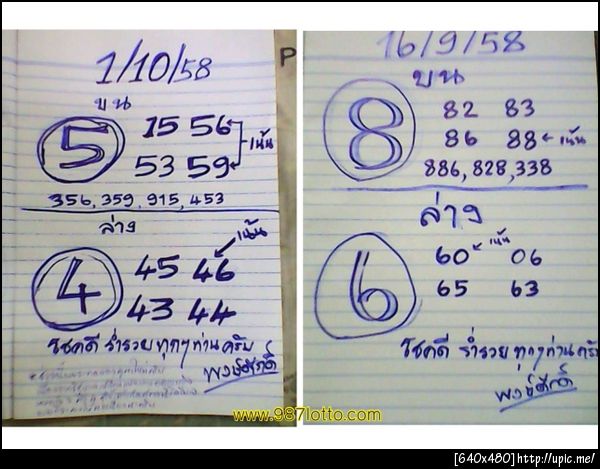 1/10/58
P
บน
5
15 56
เน้น
53 59
356, 359, 915, 453
ล่าง
4
เน้น
45 46
43 44
โชคดี ร่ำรวย ทุกๆท่าน ครับ
พงษ์ศักดิ์
16/9/58
บน
8
82 83
86 88 เน้น
886, 828, 338
ล่าง
6
60 เน้น 06
65 63
โชคดี ร่ำรวย ทุกๆท่าน ครับ
พงษ์ศักดิ์
www.987lotto.com
[640x480]http://upic.me/